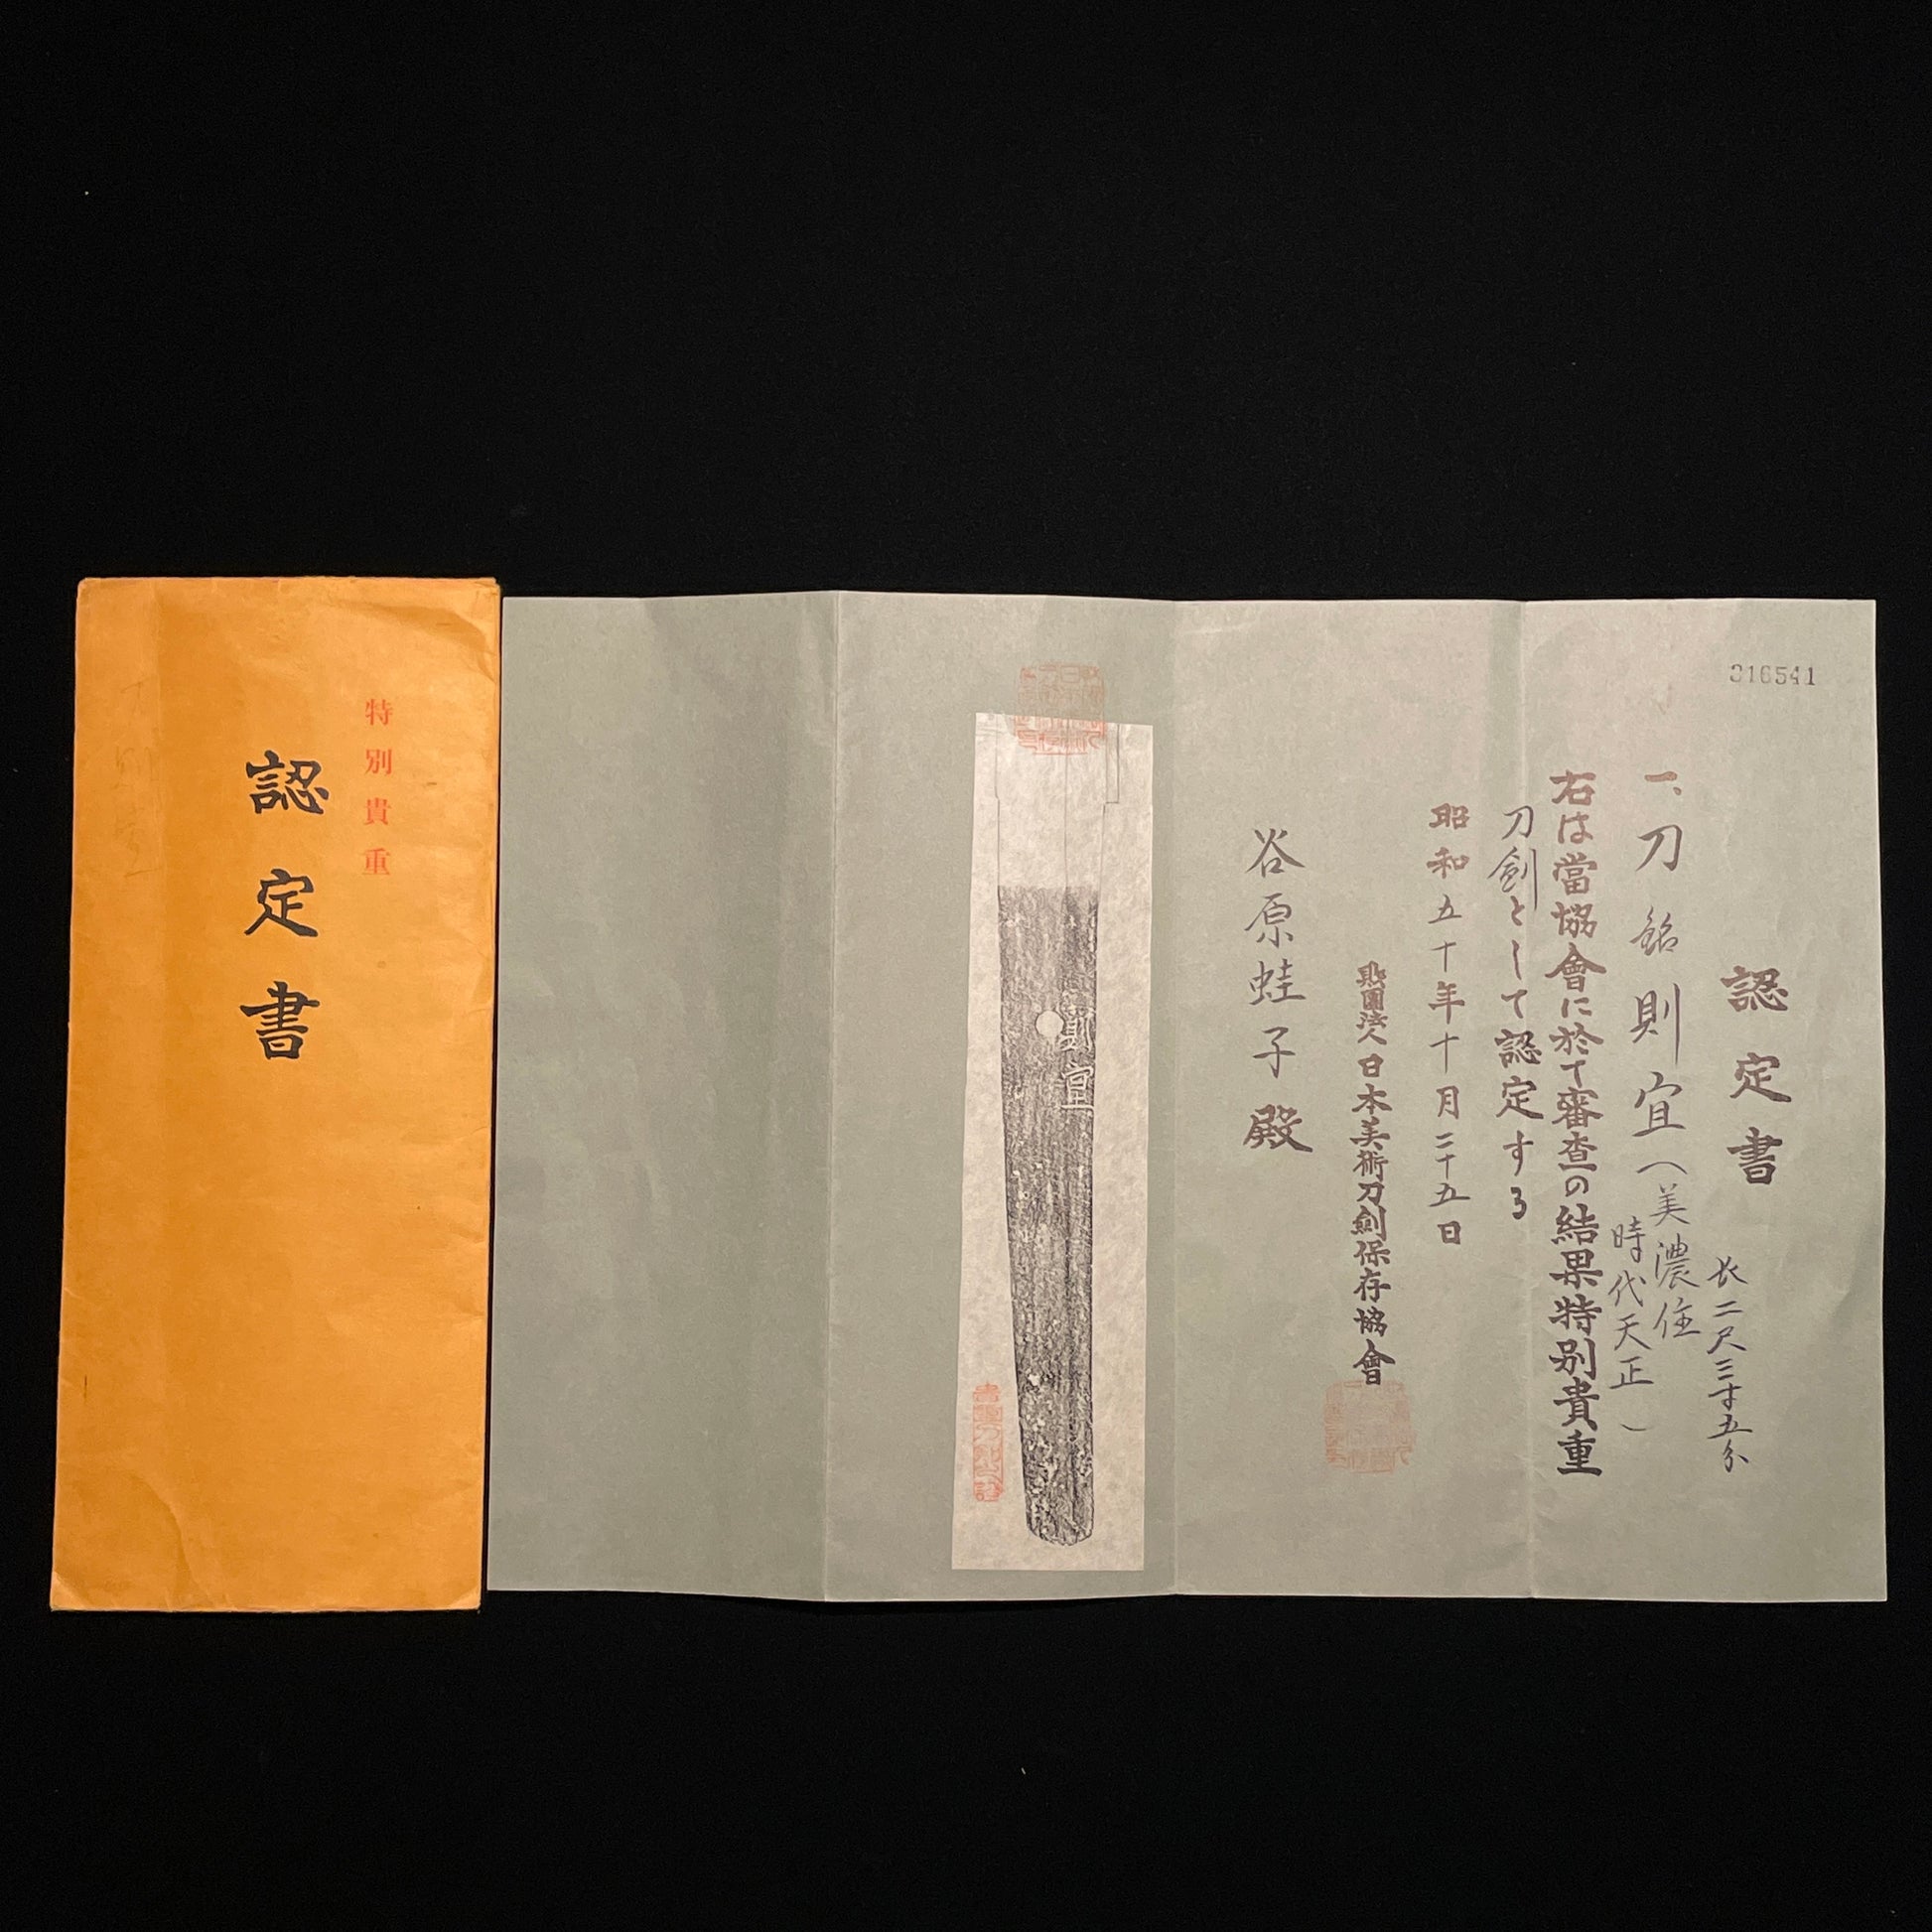 特別貴重
認定書
316541
認定書
長二尺三寸五分
一、刀 銘 則宜(美濃住
時代天正)
右は當協會に於て審査の結果特別貴重
刀劍として認定する
昭和五十年十月二十五日
財團法人日本美術刀劍保存協會
谷原蛙子殿
則宜